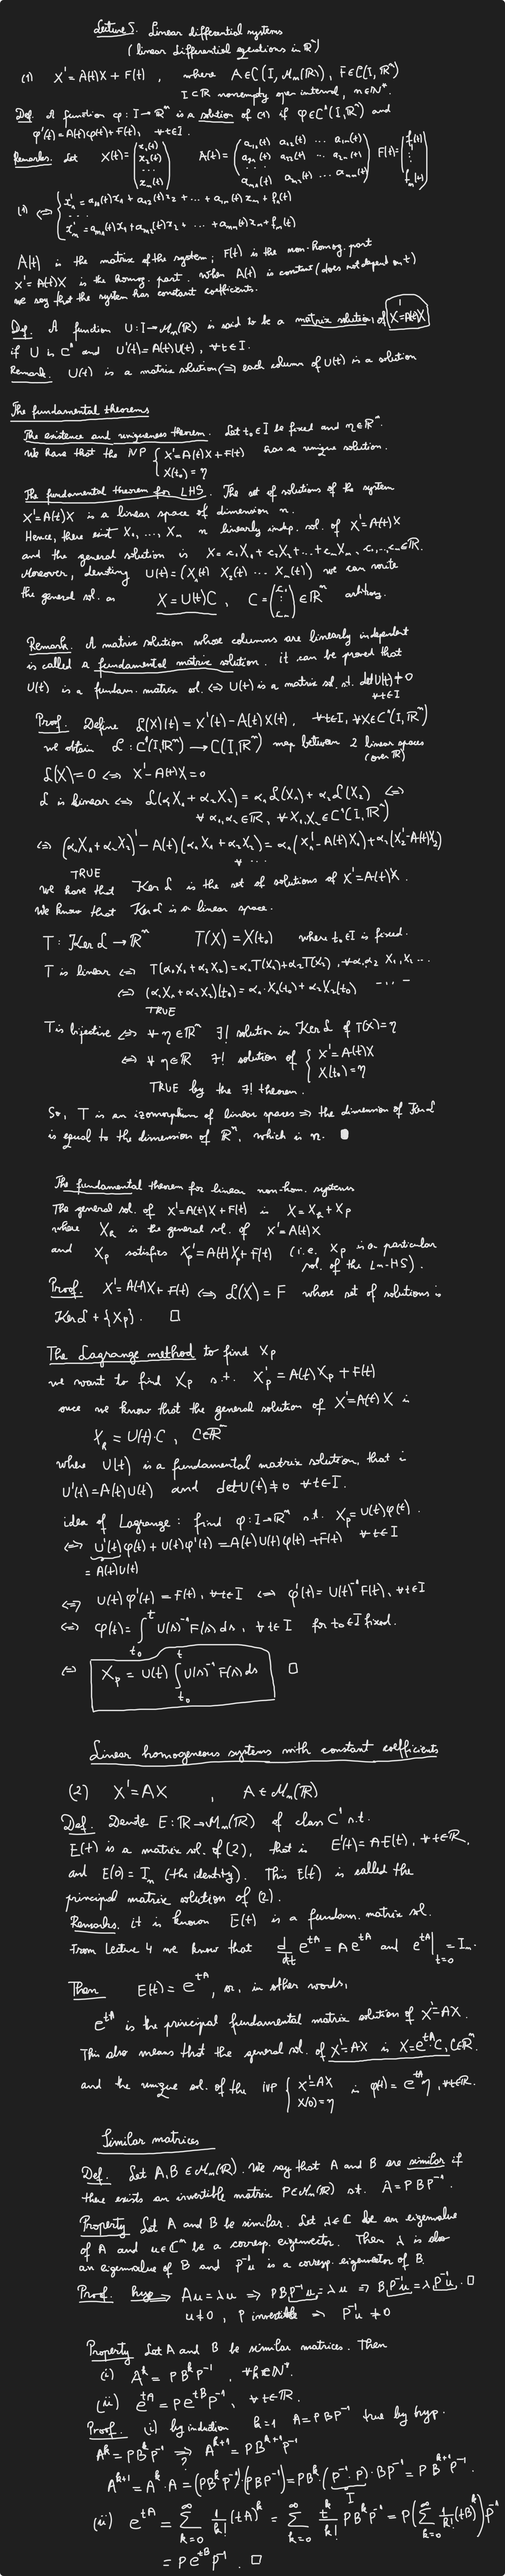 Lecture 5. Linear differential systems
(linear differential equations in ℝⁿ)
(1) X' = A(t)X + F(t) , where A∈C(I, Mₙ(ℝ)), F∈C(I, ℝⁿ)
I⊂ℝ nonempty open interval, n∈ℕ*.
Def. A function φ: I→ℝⁿ is a solution of (1) if φ∈C¹(I,ℝⁿ) and
φ'(t)=A(t)φ(t)+F(t), ∀t∈I.
Remarks. Let X(t)=(x₁(t) x₂(t) ... xₙ(t)) A(t)=(a₁₁(t) a₁₂(t) ... a₁ₙ(t) a₂₁(t) a₂₂(t) ... a₂ₙ(t) ... aₙ₁(t) aₙ₂(t) ... aₙₙ(t)) F(t)=(f₁(t) ⋮ fₙ(t))
(1) ⇔ { x₁' = a₁₁(t)x₁ + a₁₂(t)x₂ + ... + a₁ₙ(t)xₙ + f₁(t)
...
xₙ' = aₙ₁(t)x₁ + aₙ₂(t)x₂ + ... + aₙₙ(t)xₙ + fₙ(t)
A(t) is the matrix of the system; F(t) is the non-homog. part
X' = A(t)X is the homog. part. When A(t) is constant (does not depend on t)
we say that the system has constant coefficients.
Def. A function U: I→Mₙ(ℝ) is said to be a matrix solution of X'=A(t)X
if U is C¹ and U'(t)=A(t)U(t), ∀t∈I.
Remark. U(t) is a matrix solution ⇔ each column of U(t) is a solution
The fundamental theorems
The existence and uniqueness theorem. Let t₀∈I be fixed and η∈ℝⁿ.
We have that the IVP { X'=A(t)X+F(t) X(t₀)=η has a unique solution.
The fundamental theorem for LHS. The set of solutions of the system
X'=A(t)X is a linear space of dimension n.
Hence, there exist X₁, ..., Xₙ n linearly indep. sol. of X'=A(t)X
and the general solution is X = c₁X₁ + c₂X₂ + ... + cₙXₙ, c₁,...,cₙ∈ℝ.
Moreover, denoting U(t) = (X₁(t) X₂(t) ... Xₙ(t)) we can write
the general sol. as X = U(t)C , C = (c₁ ⋮ cₙ) ∈ ℝⁿ arbitrary.
Remark. A matrix solution whose columns are linearly independent
is called a fundamental matrix solution. it can be proved that
U(t) is a fundam. matrix sol. ⇔ U(t) is a matrix sol. s.t. det U(t) ≠ 0
∀t∈I
Proof. Define ℒ(X)(t) = X'(t) - A(t)X(t), ∀t∈I, ∀X∈C¹(I,ℝⁿ)
we obtain ℒ: C¹(I,ℝⁿ) → C(I,ℝⁿ) map between 2 linear spaces
(over ℝ)
ℒ(X)=0 ⇔ X'-A(t)X=0
ℒ is linear ⇔ ℒ(α₁X₁ + α₂X₂) = α₁ℒ(X₁) + α₂ℒ(X₂) ⇔
∀α₁,α₂∈ℝ, ∀X₁,X₂∈C¹(I,ℝⁿ)
⇔ (α₁X₁ + α₂X₂)' - A(t)(α₁X₁ + α₂X₂) = α₁(X₁'-A(t)X₁) + α₂(X₂'-A(t)X₂)
∀ ...
TRUE
We have that Ker ℒ is the set of solutions of X'=A(t)X.
We know that Ker ℒ is a linear space.
T: Ker ℒ → ℝⁿ T(X) = X(t₀) where t₀∈I is fixed.
T is linear ⇔ T(α₁X₁+α₂X₂)=α₁T(X₁)+α₂T(X₂), ∀α₁,α₂ X₁, X₂ ...
⇔ (α₁X₁+α₂X₂)(t₀) = α₁·X₁(t₀)+α₂X₂(t₀) ...
TRUE
T is bijective ⇔ ∀η∈ℝⁿ ∃! solution in Ker ℒ of T(X)=η
⇔ ∀η∈ℝ ∃! solution of { X'=A(t)X X(t₀)=η
TRUE by the ∃! theorem.
So, T is an izomorphism of linear spaces ⇒ the dimension of Ker ℒ
is equal to the dimension of ℝⁿ, which is n.
The fundamental theorem for linear non-hom. systems
The general sol. of X'=A(t)X+F(t) is X=X_h+X_p
where X_h is the general sol. of X'=A(t)X
and X_p satisfies X_p'=A(t)X_p+F(t) (i.e. X_p is a particular
sol. of the Ln-HS).
Proof. X'=A(t)X+F(t) ⇔ ℒ(X)=F whose set of solutions is
Ker ℒ + {X_p}. □
The Lagrange method to find X_p
we want to find X_p s.t. X_p' = A(t)X_p + F(t)
once we know that the general solution of X'=A(t)X is
X_h = U(t)·C , C∈ℝⁿ
where U(t) is a fundamental matrix solution, that is
U'(t)=A(t)U(t) and det U(t)≠0 ∀t∈I.
idea of Lagrange: find φ: I→ℝⁿ s.t. X_p=U(t)φ(t).
⇔ U'(t)φ(t) + U(t)φ'(t) = A(t)U(t)φ(t)+F(t) ∀t∈I
= A(t)U(t)
⇔ U(t)φ'(t) = F(t), ∀t∈I ⇔ φ'(t) = U(t)⁻¹F(t), ∀t∈I
⇔ φ(t) = ∫_{t₀}^{t} U(s)⁻¹F(s)ds, ∀t∈I for t₀∈I fixed.
⇔ X_p = U(t) ∫_{t₀}^{t} U(s)⁻¹F(s)ds □
Linear homogeneous systems with constant coefficients
(2) X'=AX , A∈Mₙ(ℝ)
Def. Denote E: ℝ→Mₙ(ℝ) of class C¹ s.t.
E(t) is a matrix sol. of (2), that is E'(t)=AE(t), ∀t∈ℝ,
and E(0)=Iₙ (the identity). This E(t) is called the
principal matrix solution of (2).
Remarks. it is known E(t) is a fundam. matrix sol.
From Lecture 4 we know that d/dt e^{tA} = A e^{tA} and e^{tA}|_{t=0} = Iₙ.
Then E(t) = e^{tA}, or, in other words,
e^{tA} is the principal fundamental matrix solution of X'=AX.
This also means that the general sol. of X'=AX is X=e^{tA}·C, C∈ℝⁿ.
and the unique sol. of the IVP { X'=AX X(0)=η is φ(t) = e^{tA}η, ∀t∈ℝ.
Similar matrices
Def. Let A,B∈Mₙ(ℝ). We say that A and B are similar if
there exists an invertible matrix P∈Mₙ(ℝ) s.t. A=PBP⁻¹.
Property Let A and B be similar. Let λ∈ℂ be an eigenvalue
of A and u∈ℂⁿ be a corresp. eigenvector. Then λ is also
an eigenvalue of B and P⁻¹u is a corresp. eigenvector of B.
Proof. hyp ⇒ Au=λu ⇒ PBP⁻¹u=λu ⇒ BP⁻¹u=λP⁻¹u. □
u≠0, P invertible ⇒ P⁻¹u≠0
Property Let A and B be similar matrices. Then
(i) Aᵏ = PBᵏP⁻¹, ∀k∈ℕ*.
(ii) e^{tA} = Pe^{tB}P⁻¹, ∀t∈ℝ.
Proof. (i) by induction k=1 A=PBP⁻¹ true by hyp.
Aᵏ=PBᵏP⁻¹ ⇒? Aᵏ⁺¹=PBᵏ⁺¹P⁻¹
Aᵏ⁺¹=Aᵏ·A=(PBᵏP⁻¹)·(PBP⁻¹)=PBᵏ·(P⁻¹·P)·BP⁻¹=PBᵏ⁺¹P⁻¹.
I
(ii) e^{tA} = ∑_{k=0}^{∞} 1/k! (tA)ᵏ = ∑_{k=0}^{∞} tᵏ/k! PBᵏP⁻¹ = P(∑_{k=0}^{∞} 1/k! (tB)ᵏ)P⁻¹
= Pe^{tB}P⁻¹. □